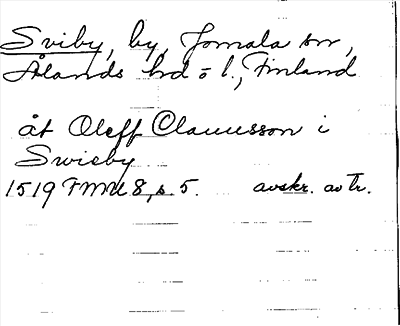 Sviby, by, Jomala sn,
Ålands hd o l., Finland
åt Oleff Clauusson i
Swieby
1519 FMU 8, s. 5. avskr. av tr.